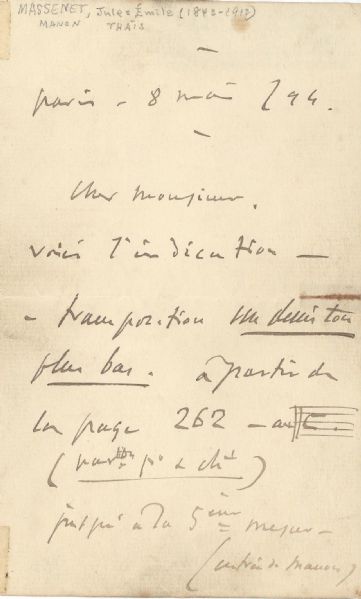 MASSENET, Jules Émile (1842-1912)
MANON THAÏS
Paris - 8 mai /94.
Cher Monsieur.
voici l'indication -
- transposition un demi ton
plus bas. à partir de
la page 262 - au C.
(parton po & cht)
jusqu'à la 5ème mesure -
(entrée de Manon)